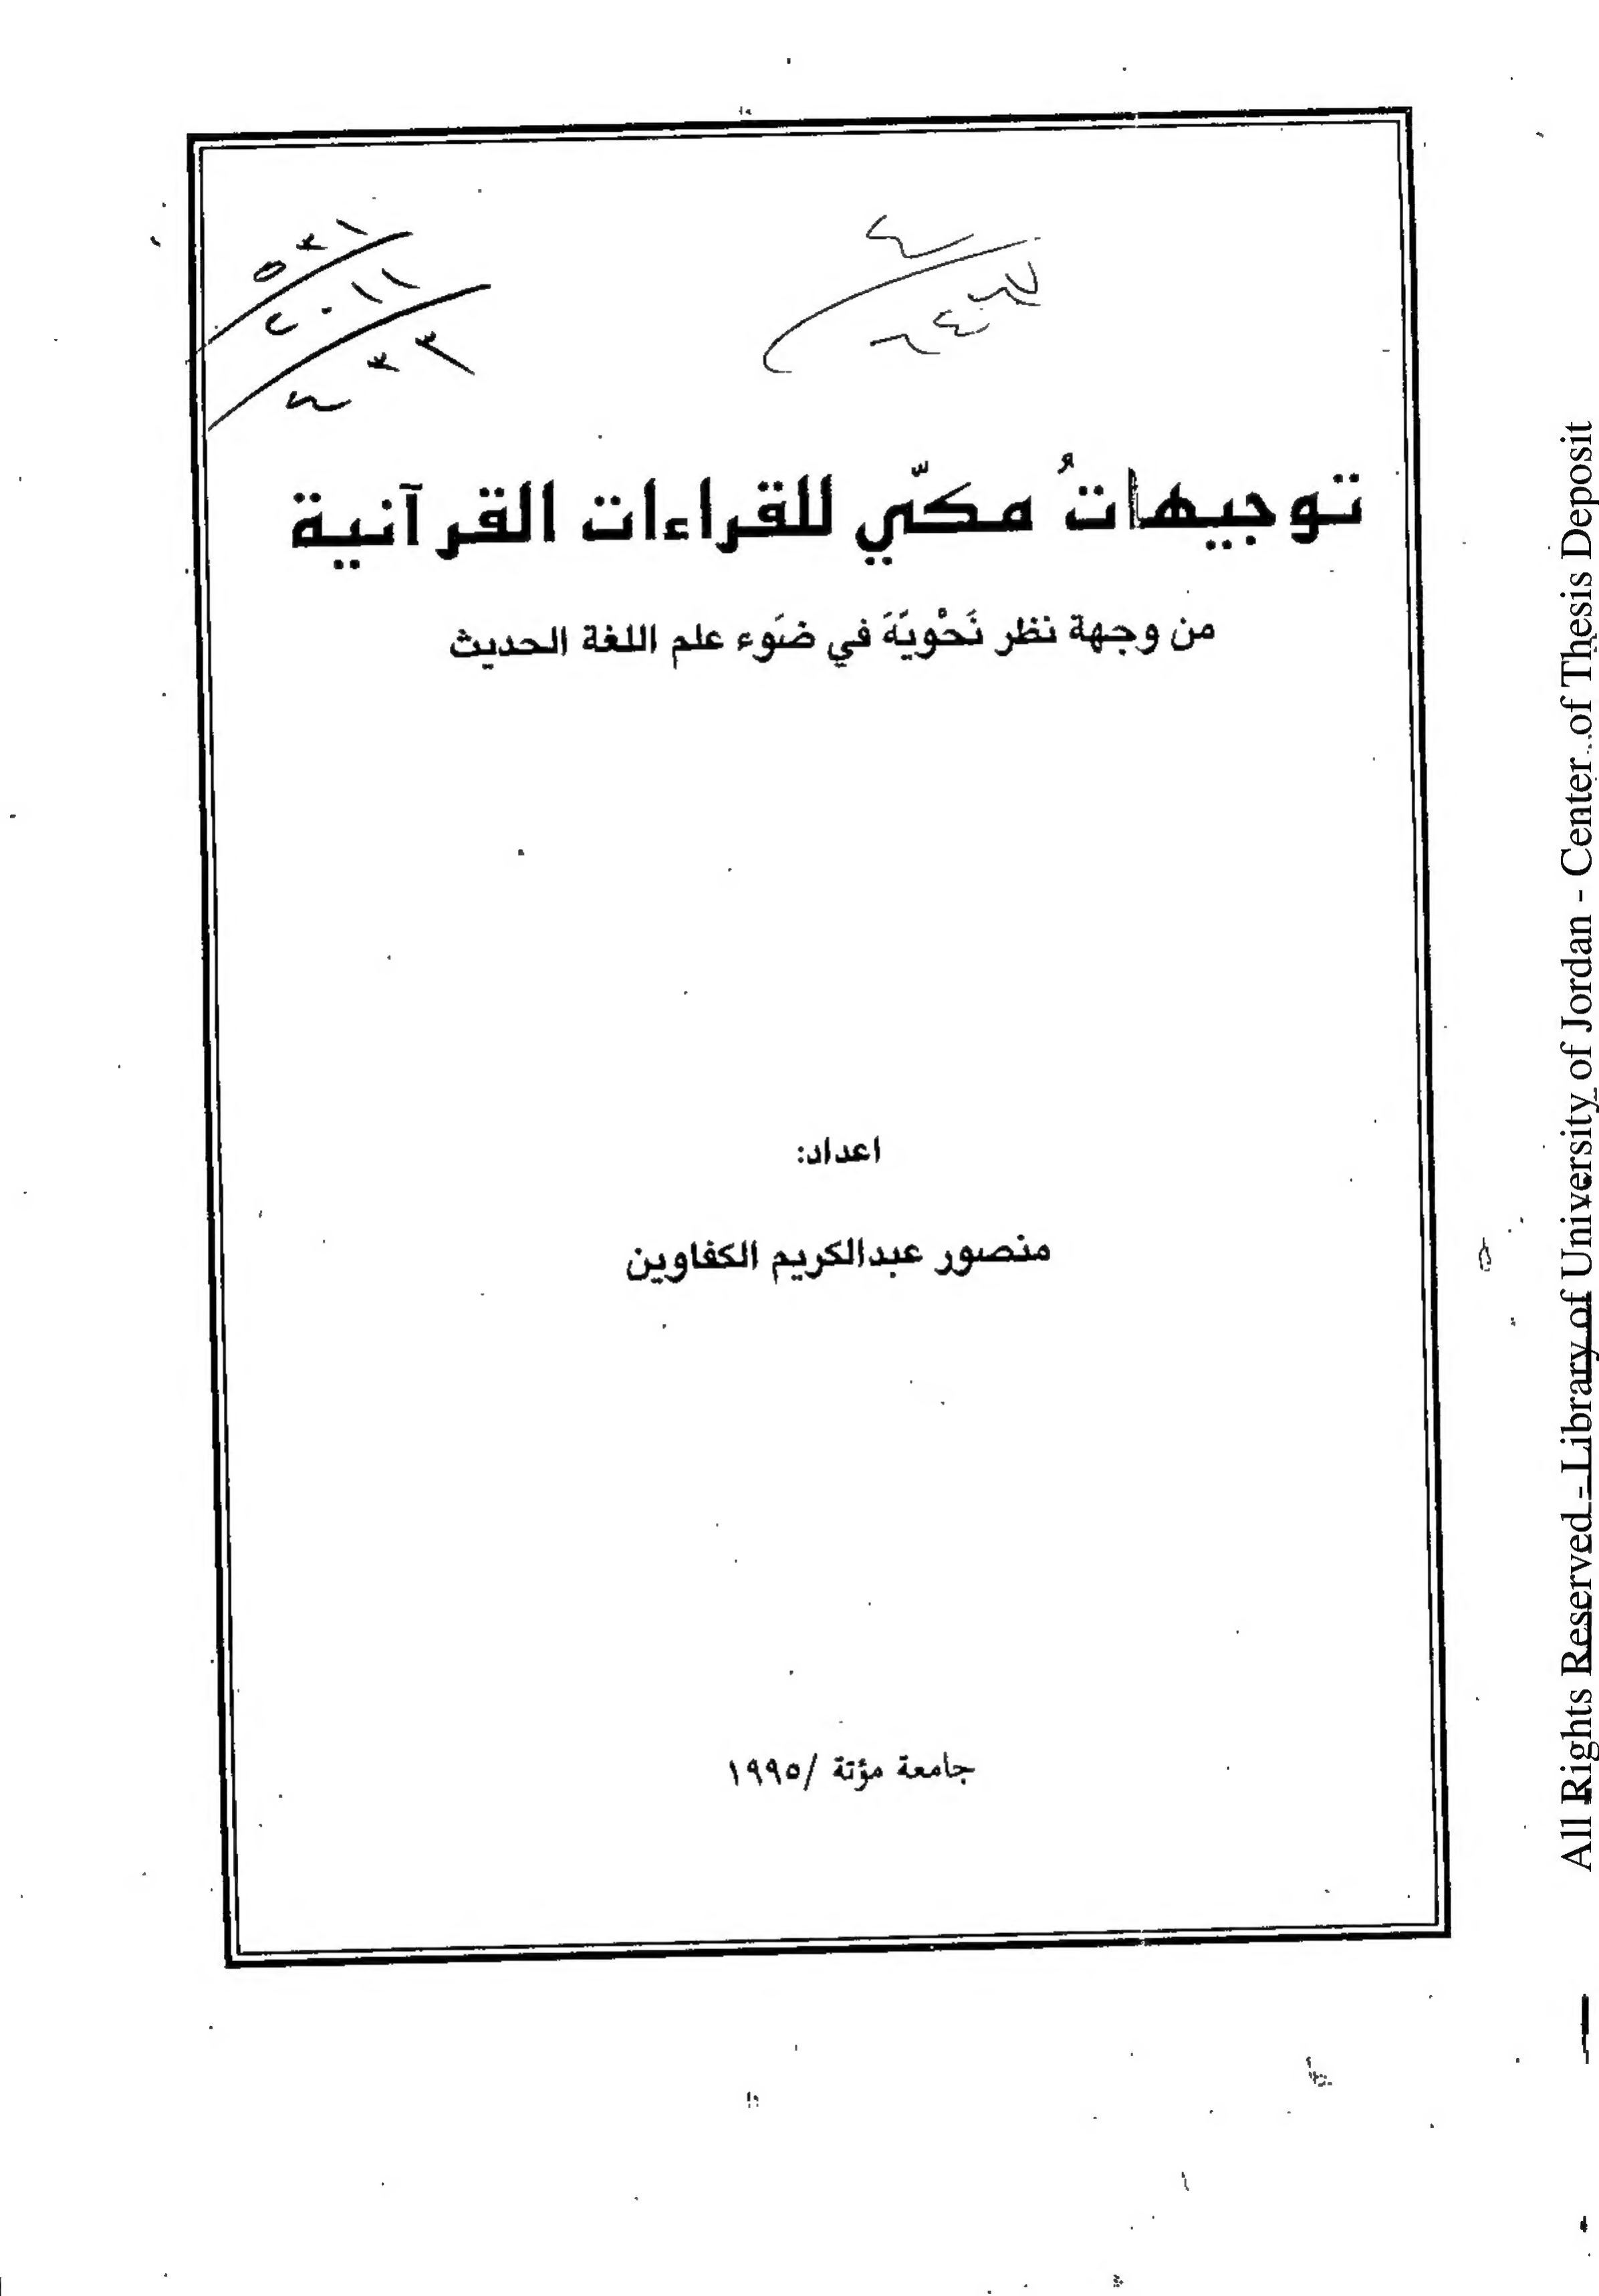 توجيهاتُ مكّي للقراءات القرآنية
من وجهة نظر نَحْويَّة في ضَوء علم اللغة الحديث
اعداد:
منصور عبدالكريم الكفاوين
جامعة مؤتة /١٩٩٥
All Rights Reserved - Library of University of Jordan - Center of Thesis Deposit